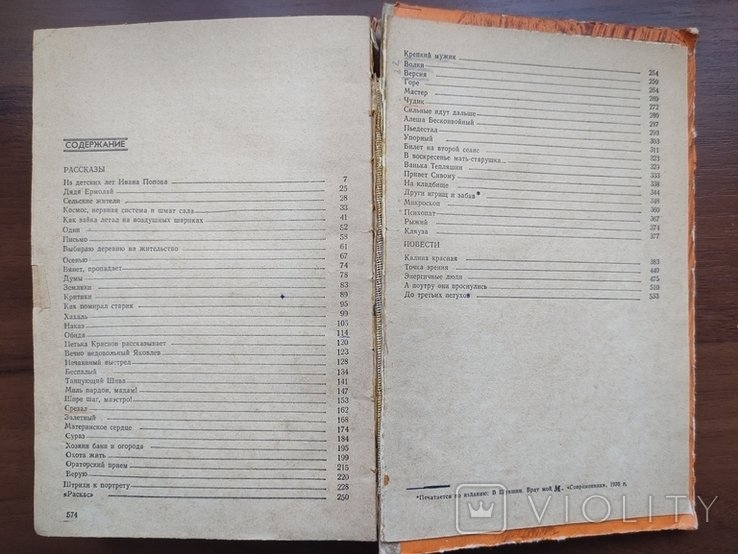 СОДЕРЖАНИЕ
РАССКАЗЫ
Из детских лет Ивана Попова 7
Дядя Ермолай 25
Сельские жители 28
Космос, нервная система и шмат сала 33
Как зайка летал на воздушных шариках 41
Один 52
Письмо 58
Выбираю деревню на жительство 61
Осенью 67
Вянет, пропадает 74
Думы 78
Земляки 83
Критики 89
Как помирал старик 95
Хахаль 99
Наказ 105
Обида 114
Петька Краснов рассказывает 120
Вечно недовольный Яковлев 123
Нечаянный выстрел 128
Беспалый 134
Танцующий Шива 141
Миль пардон, мадам! 147
Шире шаг, маэстро! 153
Срезал 162
Залетный 168
Материнское сердце 174
Сураз 184
Хозяин бани и огорода 195
Охота жить 199
Ораторский прием 215
Верую 220
Штрихи к портрету 228
«Раскас» 250
574
Крепкий мужик
Волки 254
Версия 259
Горе 264
Мастер 269
Чудик 272
Сильные идут дальше 280
Алеша Бесконвойный 287
Пьедестал 293
Упорный 303
Билет на второй сеанс 311
В воскресенье мать-старушка... 323
Ванька Тепляшин 323
Привет Сивому 333
На кладбище 338
Други игрищ и забав* 344
Микроскоп 348
Психопат 360
Рыжий 367
Кляуза 374
377
ПОВЕСТИ
Калина красная 383
Точка зрения 440
Энергичные люди 475
А поутру они проснулись 510
До третьих петухов 533
*Печатается по изданию: В Шукшин. Брат мой М., «Современник», 1975 г.
VIOLITY